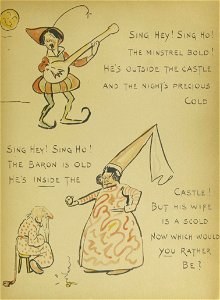 Sing Hey! Sing Ho!
The Minstrel Bold!
He's outside the Castle
and the night's precious
Cold
Sing Hey! Sing Ho!
The Baron is old
He's inside the
Castle!
But his wife
is a scold
Now which would
you rather
Be?